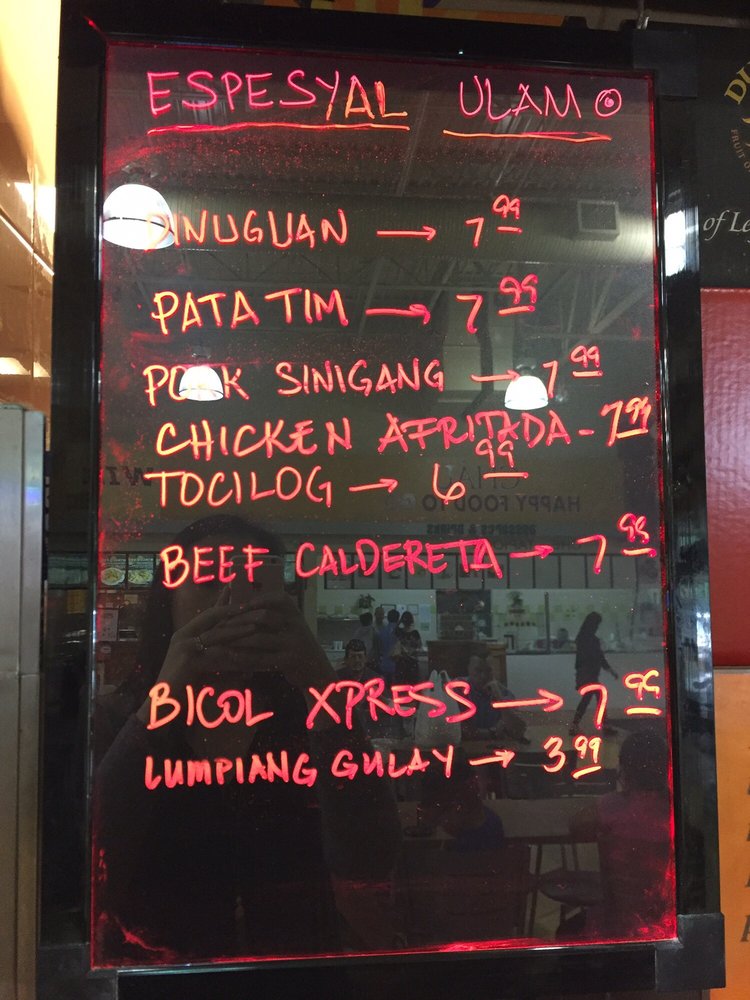 ESPESYAL ULAM
DINUGUAN → 7.99
PATA TIM → 7.99
PORK SINIGANG → 7.99
CHICKEN AFRITADA - 7.99
TOCILOG → 6.99
BEEF CALDERETA → 7.99
BICOL XPRESS → 7.99
LUMPIANG GULAY → 3.99
HAPPY FOOD TO
DESSERTS & DRINKS
of Le